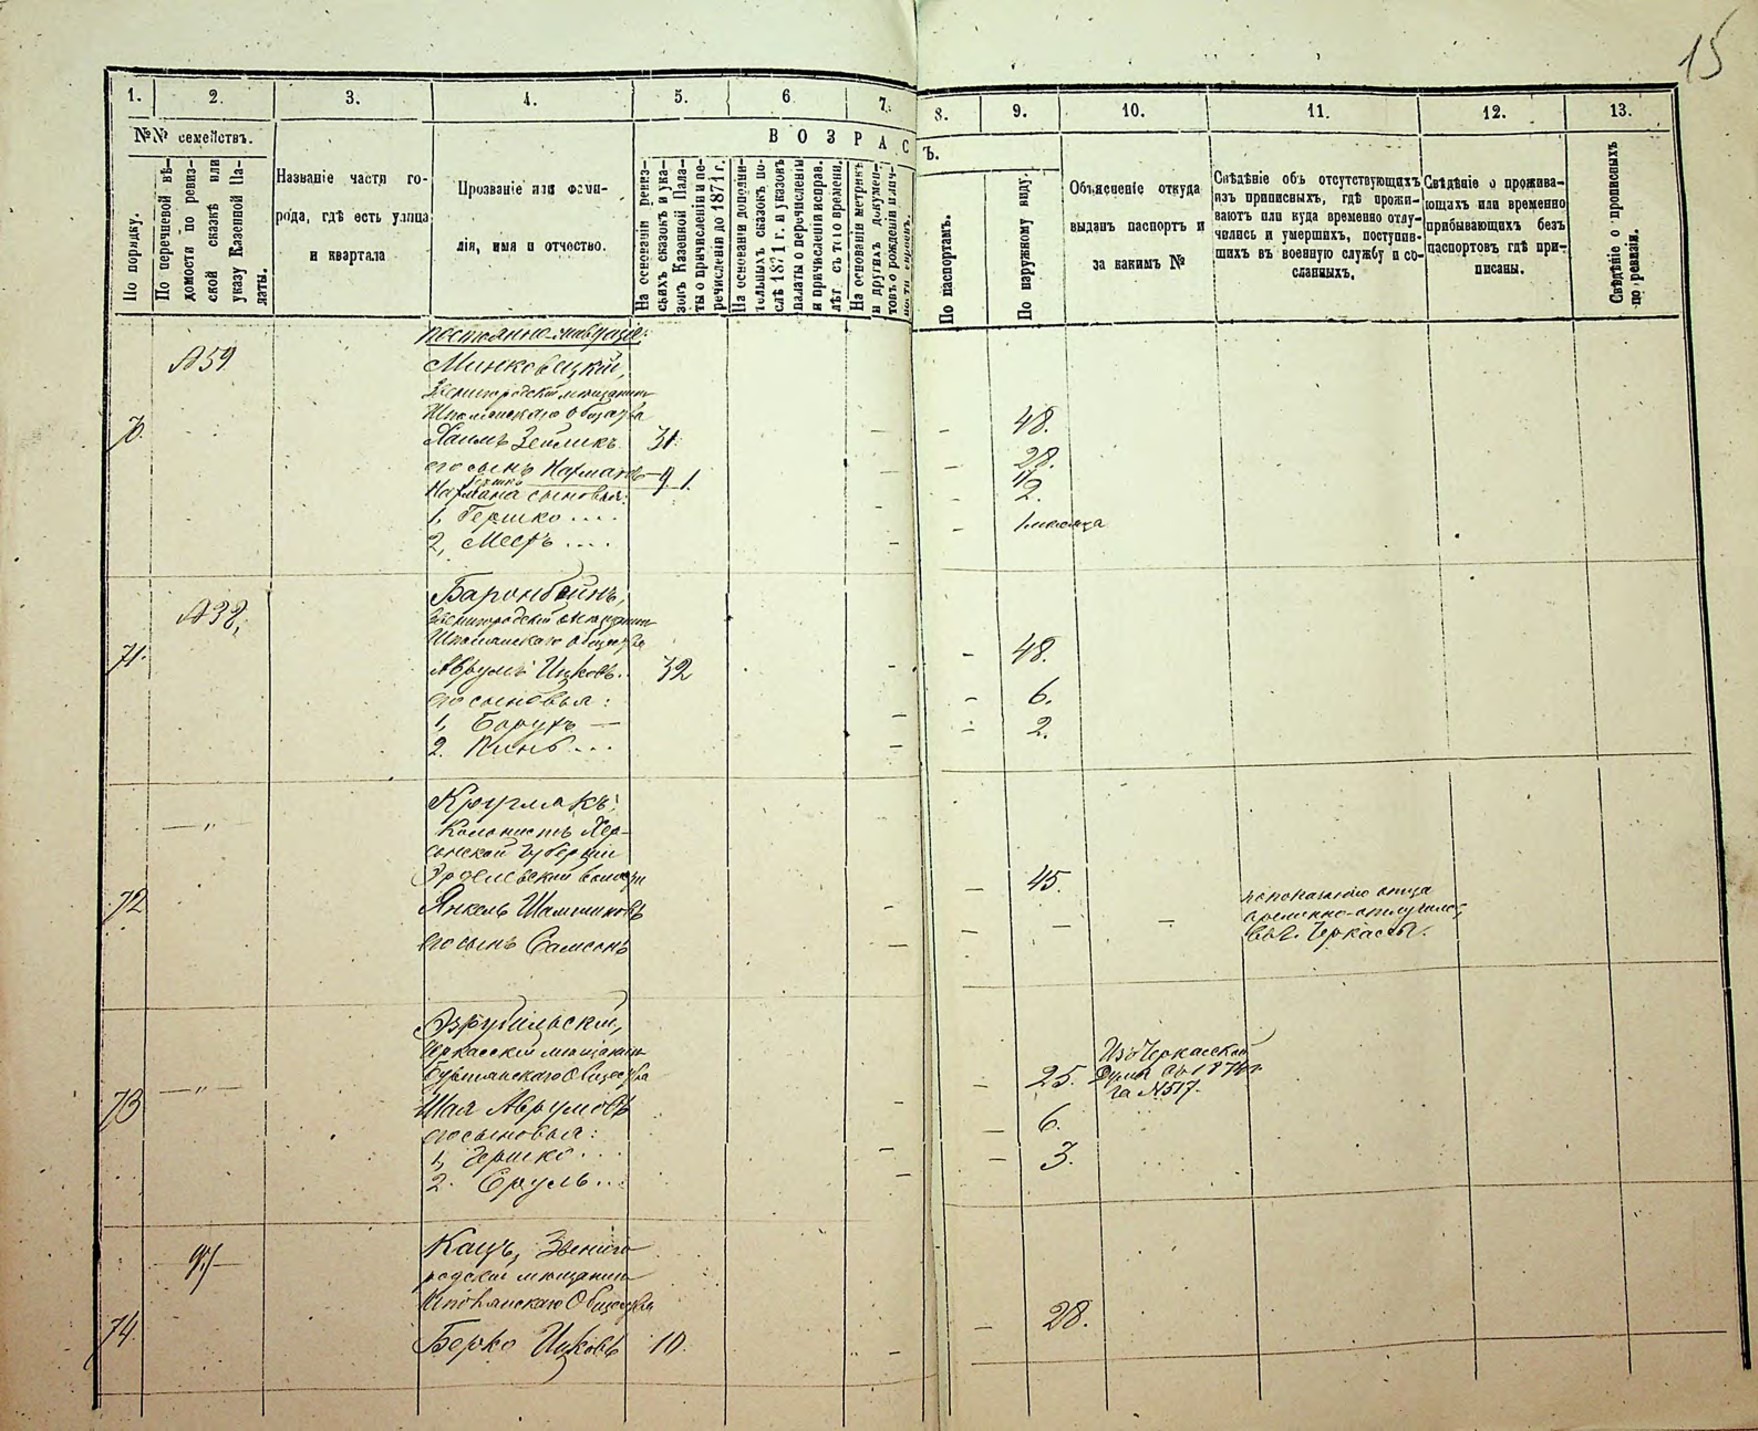 15
1. 2. 3. 4. 5. 6 7. 8. 9. 10. 11. 12. 13.
№№ семействъ.
ВОЗРАСТЪ.
По порядку.
По перечневой вѣ-
домости по ревиз-
ской сказкѣ или
указу Казенной Па-
латы.
Названіе части го-
рода, гдѣ есть улица
и квартала
Прозваніе или фами-
лія, имя и отчество.
На основаніи ревиз-
скихъ сказокъ и ука-
зокъ Казенной Пала-
ты о причисленіи и пе-
речисленіи до 1871 г.
На основаніи дополни-
тельныхъ сказокъ по-
слѣ 1871 г. и указокъ
палаты о перечисленіи
и причисленіи исправ.
лѣт съ того времени.
На основаніи метрикъ
и другихъ докумен-
товъ о рожденіи и лич-
По паспортамъ.
По наружному виду.
Объясненіе откуда
выданъ паспортъ и
за какимъ №
Свѣдѣніе объ отсутствующихъ
изъ приписныхъ, гдѣ прожи-
ваютъ или куда временно отлу-
чились и умершихъ, поступив-
шихъ въ военную службу и со-
сланныхъ.
Свѣдѣніе о прожива-
ющихъ или временно
прибывающихъ безъ
паспортовъ гдѣ при-
писаны.
Свѣдѣніе о прописныхъ
по ревизіи.
№59
Минковецкій,
Звенигородскій мещанинъ
Шполянскаго Общества
70. Хаимъ Зейликъ 31. 48.
его сынъ Нахманъ 9. 1. 28.
Нахмана сыновья:
1, Гершко . . . . 2.
2, Мееръ . . . . 1 месяца
№38,
Баронбойнъ,
Звенигородскій мещанинъ
Шполянскаго Общества
71. Аврумъ Ицковъ. 32 48.
его сыновья:
1, Борухъ — 6.
2. Пинь . . . 2.
— „ —
Круглякъ,
Колонистъ Хер-
сонской Губерніи
72 Янкель 45.
его сынъ Самсонъ
временно-отлучился
въ г. Черкассы.
Черкасскій мещанинъ
— „ —
73 Шая Аврумовъ 25.
его сыновья:
1, Гершко . . . 6.
2. Сруль . . . 3.
Изъ Черкасской
Думы въ 1874 г.
за №517.
Кацъ, Звениго
родскій мещанинъ
Шполянскаго Общества
74. Берко Ицковъ 10. 28.